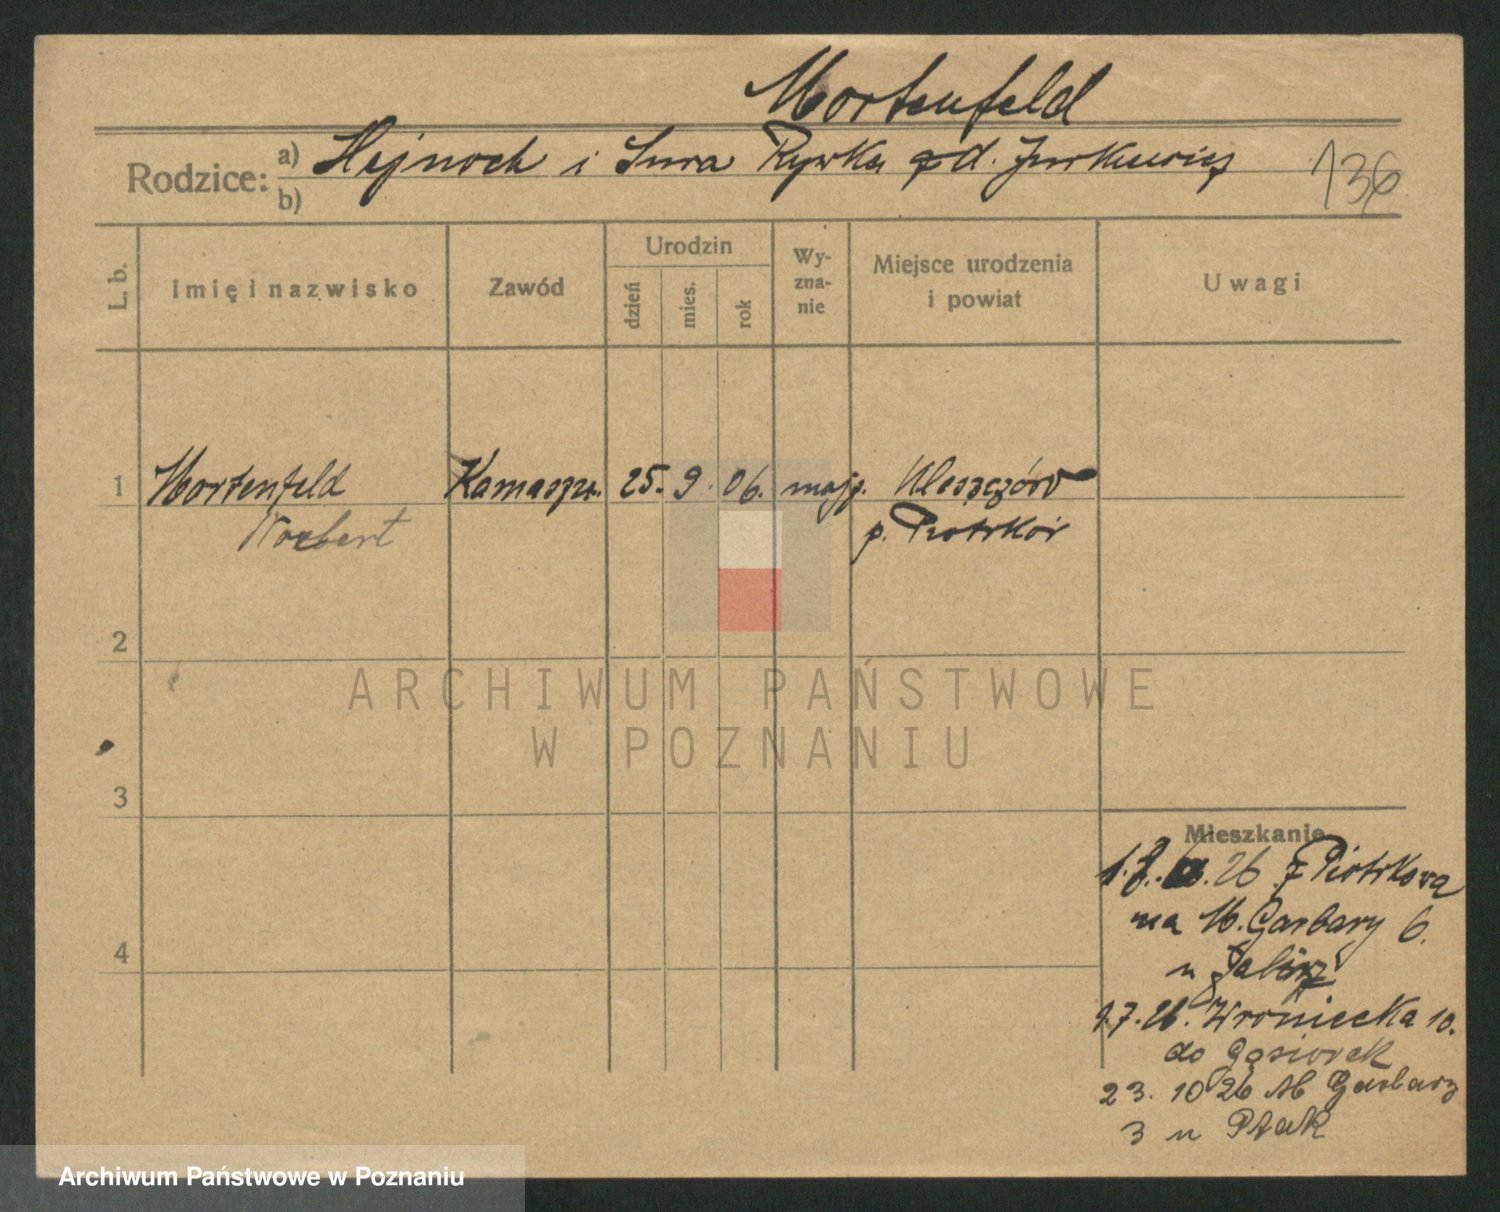 Mortenfeld
Rodzice: a) Hejnoch i Sura Rywka zd. Jurkiewicz 136
b)
L. b. Imię i nazwisko Zawód Urodzin dzień mies. rok Wyznanie Miejsce urodzenia i powiat Uwagi
1 Mortenfeld Kamaszn. 25. 9. 06. mojż. Kleszczów
Norbert p. Piotrków
2
3
4
Mieszkanie
26 z Piotrkowa
na M. Garbary 6.
u
9.7.26. Wroniecka 10.
do Gąsiorek
23. 10 26 M Garbary
3 u Ptak
ARCHIWUM PAŃSTWOWE
W POZNANIU
Archiwum Państwowe w Poznaniu